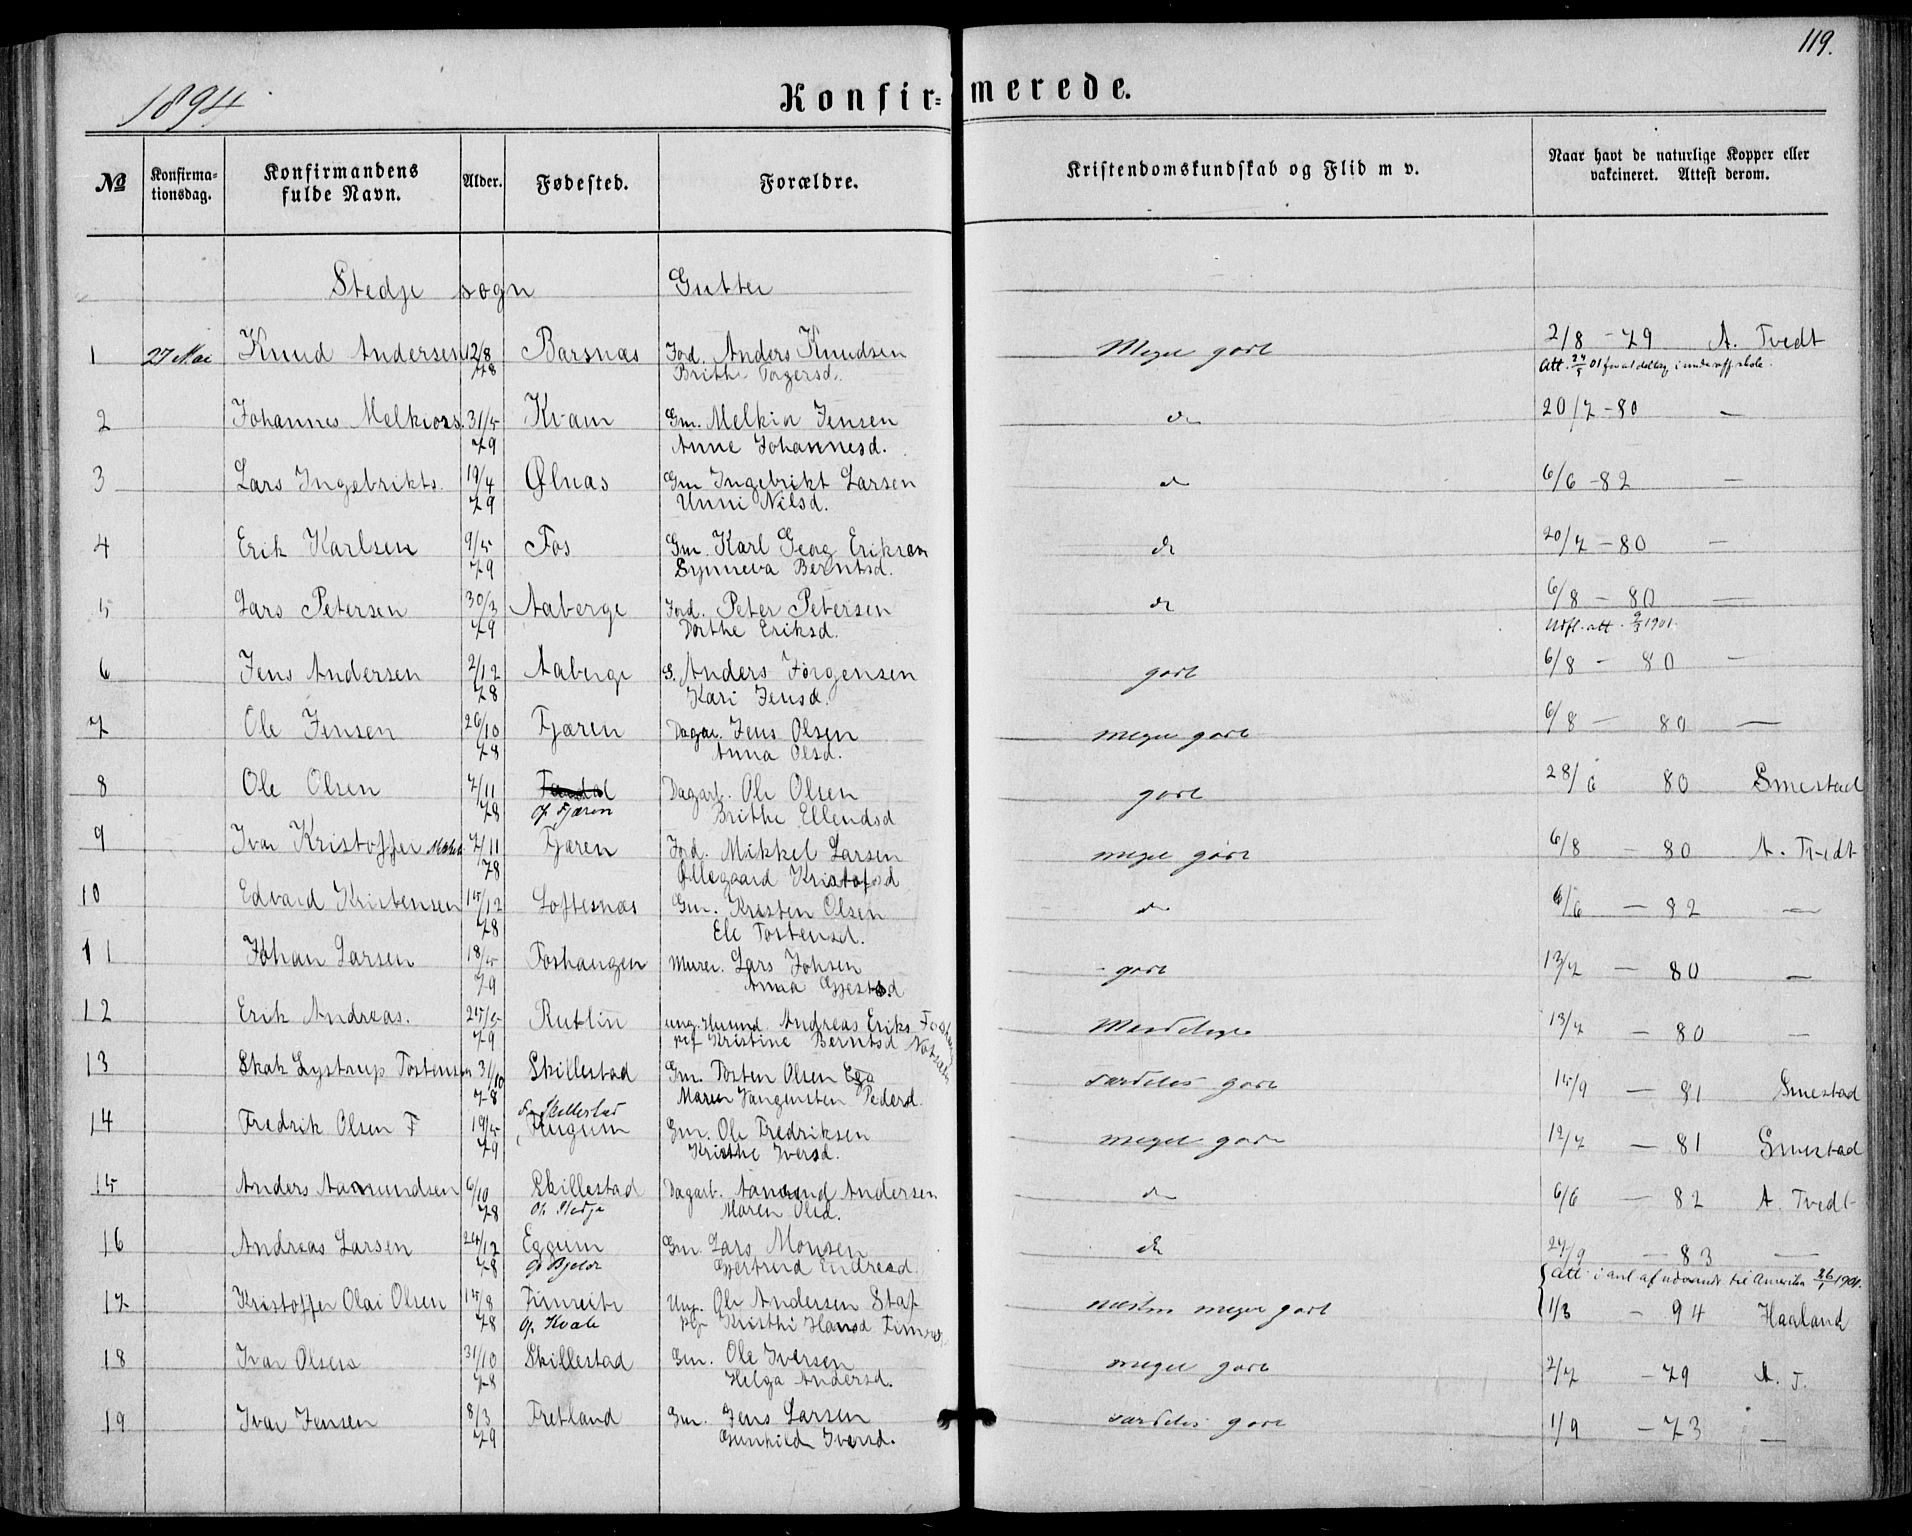 119.
1894
Konfirmerede.
№ Konfirmationsdag. Konfirmandens fulde Navn. Alder. Fødested. Forældre. Kristendomskundskab og Flid m v. Naar havt de naturlige Kopper eller vakcineret. Attest derom.
Stedje sogn Gutter
1 27 Mai Knud Andersen 12/8 Barsnæs Ford. Anders Knudsen Meget godt 2/8 - 79 A. Tvedt
78 Brithe Torgersd. Att. 24/5 01 for at deltag i underoff.skole.
2 Johannes Melkiors. 31/5 Kvam Gm. Melkior Jensen do 20/7 - 80 —
79 Anne Johannesd.
3 Lars Ingebrikts. 19/4 Ølnæs Gm Ingebrikt Larsen do 6/6 - 82 —
79 Unni Nilsd.
4 Erik Karlsen 9/5 Fos Gm. Karl Georg Eriksen do 20/7 - 80 —
79 Synneva Berntsd.
5 Lars Petersen 30/3 Aaberge Ford. Peter Petersen do 6/8 - 80 —
79 Dorthe Eriksd. Udfl. att. 9/3 1901.
6 Jens Andersen 2/12 Aaberge S. Anders Jørgensen godt 6/8 - 80 —
78 Kari Jensd.
7 Ole Jensen 26/10 Fjæren Dagar. Jens Olsen meget godt 6/8 — 80 —
78 Anna Olsd.
8 Ole Olsen 7/11 Dagarb. Ole Olsen godt 28/6 80 Smestad
78 Op Fjæren Brithe Ellendsd
9 Ivar Kristoffer 7/11 Fjæren Ford. Mikkel Larsen meget godt 6/8 — 80 A. Tvedt
78 Ollegaard Kristofsd
10 Edvard Kristensen 15/12 Loftesnæs Gm. Kristen Olsen do 6/6 — 82 —
78 Eli Tostensd.
11 Johan Larsen 18/5 Foshaugen Murer. Lars Johsen godt 13/7 — 80 —
79 Anna Gjestsd
12 Erik Andreas. 25/5 Rutlin ung. Husmd Andreas Eriks 13/7 — 80 —
79 Kristine Berntsd
13 Skak Lystrup Tostensen 31/10 Skillestad Gm. Tosten Olsen særdeles godt 15/9 — 81 Smestad
78 Maren Pedersd.
14 Fredrik Olsen F 19/5 Gm. Ole Fredriksen meget godt 12/7 — 81 Smestad
79 Kristhe Iversd.
15 Anders Aamundsen 6/10 Skillestad Dagarb. Aamund Andersen do 6/6 — 82 A. Tvedt
78 Op. Stedje Maren Olsd.
16 Andreas Larsen 24/12 Eggum Gm. Lars Monsen do 27/9 — 83 —
78 Gjertrud Endresd. Att. i anl. af udvandr. til Amerika 26/1 1901.
17 Kristoffer Olai Olsen 15/8 Fimreite Ung. Ole Andersen næsten meget godt 1/3 - 94 Haaland
78 Op. Kvale Kristhi Hansd
18 Ivar Olsen 31/10 Skillestad Gm. Ole Iversen meget godt 2/7 - 79 A. T.
78 Helga Andersd.
19 Ivar Jensen 8/3 Fretland Gm. Jens Larsen særdeles godt 1/9 — 73 —
79 Gunhild Iversd.